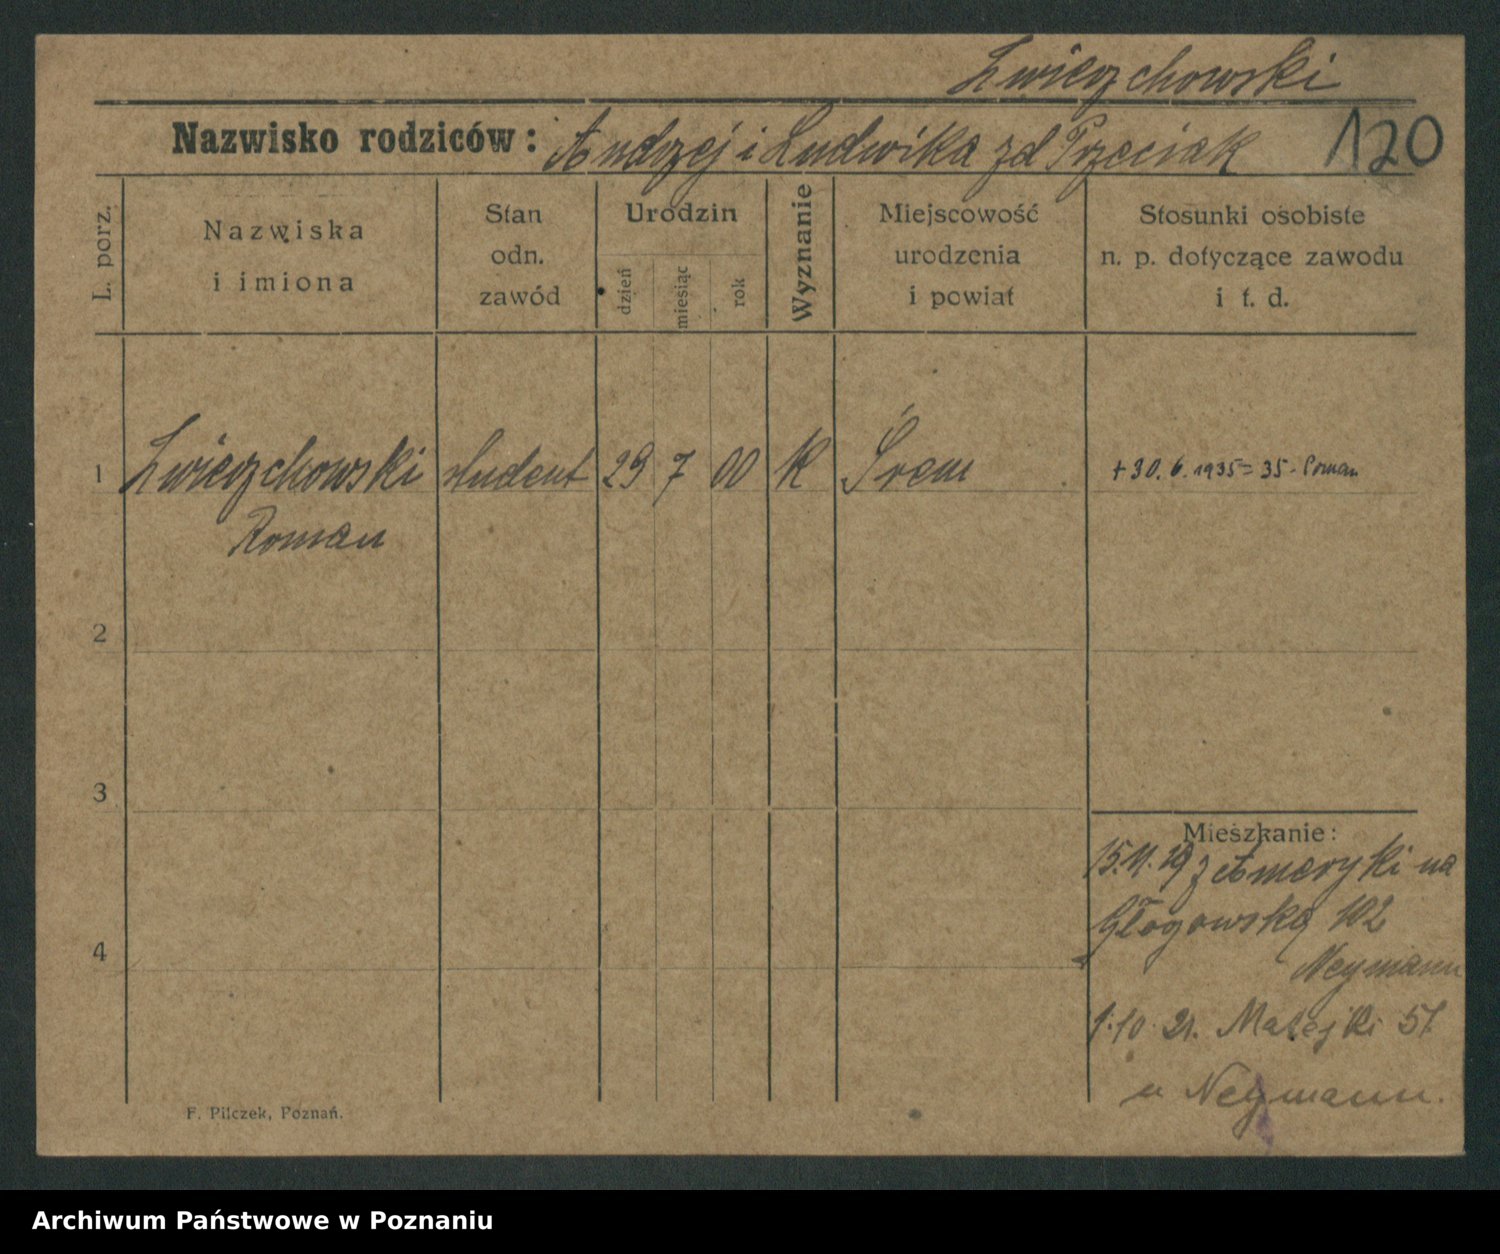 Zwierzchowski
Nazwisko rodziców: Andrzej i Ludwika zd Przeciak
120
L. porz.
Nazwiska
i imiona
Stan
odn.
zawód
Urodzin
dzień
miesiąc
rok
Wyznanie
Miejscowość
urodzenia
i powiat
Stosunki osobiste
n. p. dotyczące zawodu
i t. d.
1 Zwierzchowski student 29 7 00 K Śrem + 30. 6. 1935 = 35 - Poznan
Roman
2
3
Mieszkanie:
15.11.19 z Ameryki na
Głogowską 102
4
Neymann
1.10.21. Matejki 57
u Neymann.
F. Pilczek, Poznań.
Archiwum Państwowe w Poznaniu